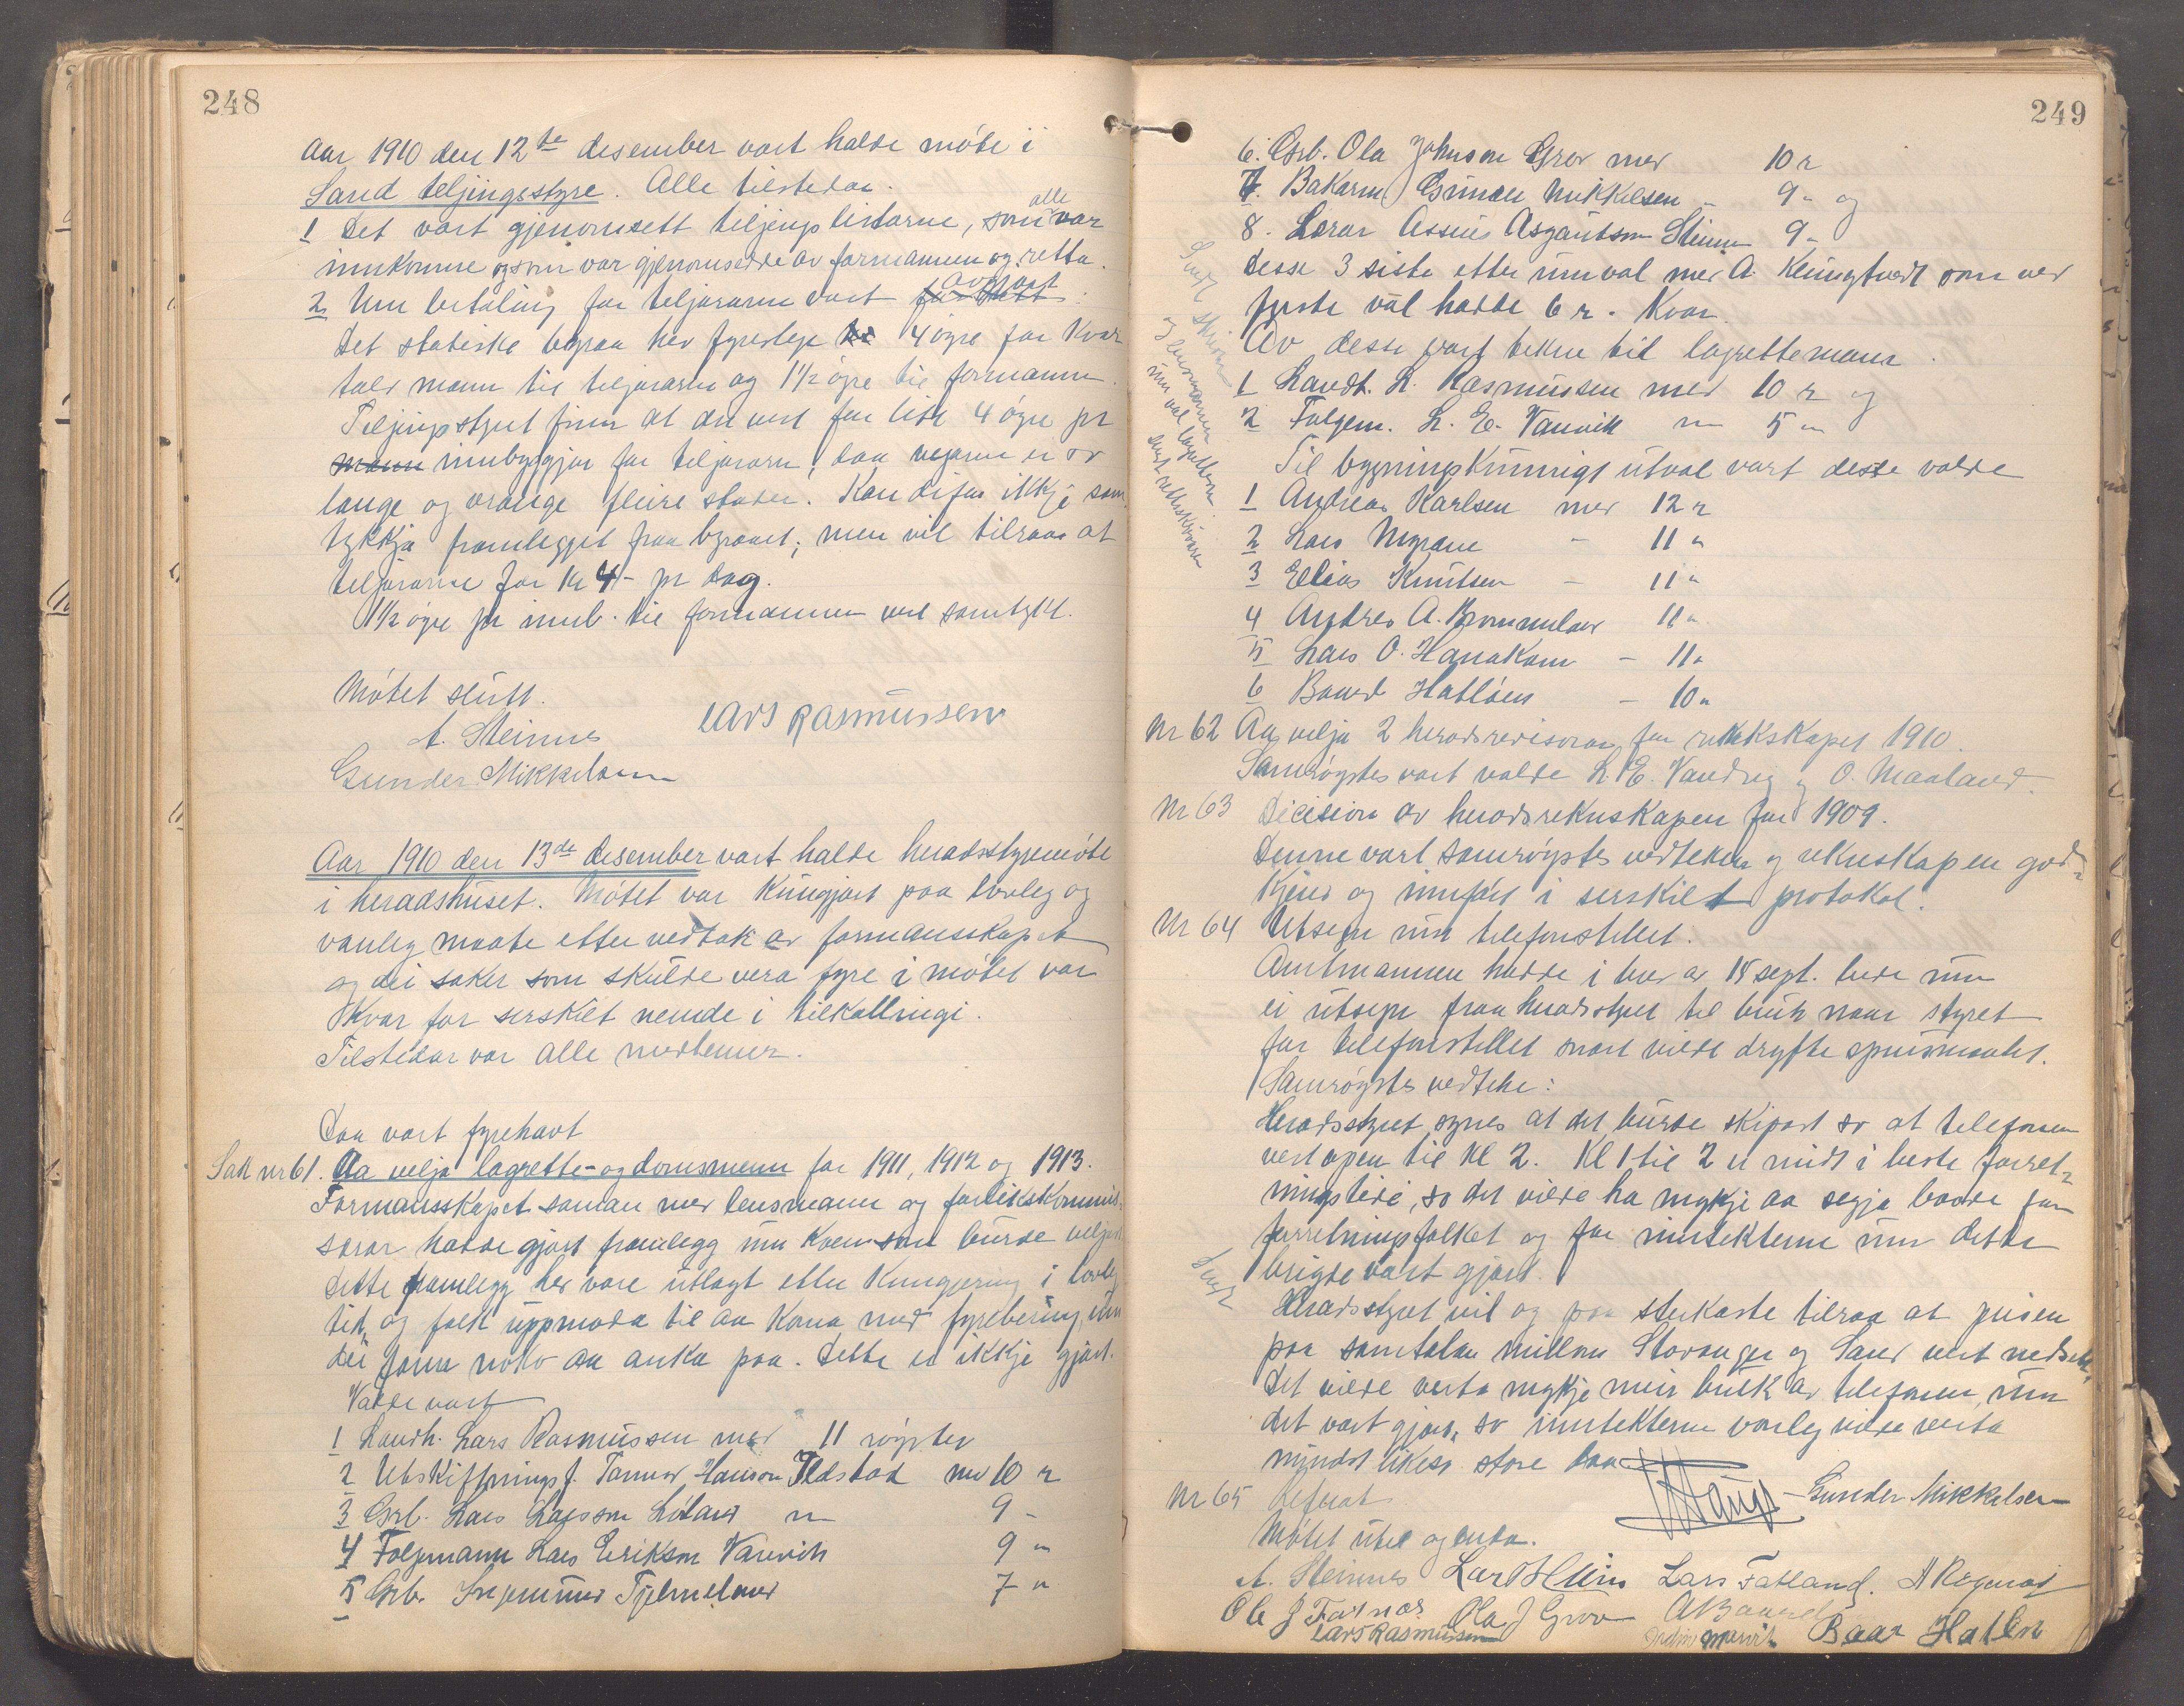 248
Aar 1910 den 12te desember vart halde møte i
Sand teljingsstyre. Alle tilstedar.
1 Det vart gjenomsett teljingslistarne, som alle var
innkomne og som var gjenomsedde av formannen og retta.
2 Um betaling for teljararne vart avgjort:
Det statiske byraa hev fyreslege 4 øyre for kvar
tald mann til teljararne og 1½ øyre til formannen.
Teljingsstyret finn at det vert for lite 4 øyre pr
mann innbyggjar for teljararne, daa vegarne er so
lange og vrange fleire stader. Kan difor ikkje sam
tykkja framlegget fraa byraaet; men vil tilraa at
teljararne fær kr 4- pr dag.
1½ øyre pr innb. til formannen vert samtykt.
Møtet slutt.
A. Steinnes Lars Rasmussen
Gunder Mikkelsen
Aar 1910 den 13de desember vart halde heradsstyremøte
i heradshuset. Møtet var kungjort paa lovleg og
vanleg maate etter vedtak av formannskapet
og dei saker som skulde vera fyre i møtet var
kvar for serskilt nemde i tilkallingi.
Tilstedar var alle medlemer.
Daa vart fyrehavt
Sak nr 61. Aa velja lagrette- og domsmenn for 1911, 1912 og 1913.
Formansskapet saman med lensmann og forlikskommis-
sarar hadde gjort framlegg um kven som burde veljast.
Dette framlegg hev vore utlagt etter kungjering i lovleg
tid, og folk uppmoda til aa koma med fyrebering um
dei fann noko aa anka paa. Dette er ikkje gjort.
Valde vart
1 Landh. Lars Rasmussen med 11 røyster
2 Utskiftningsf. Tarmod Hanson Ilstad med 10 r
3 Grb. Lars Larsson Løland " 9 -
4 Folgemann Lars Eirikson Vanvik 9 "
5 Grb. Ingemund Tjelmeland 7 "
249
6. Grb. Ola Johnson Grov med 10 r
7. Bakarm. Gunder Mikkelsen - 9 " og
8. Lærar Assens Asgautson Steinnes 9 -
desse 3 siste etter umval med A. Klungtvedt som ved
fyrste val hadde 6 r. kvar.
Av desse vart tekne til lagrettemann.
1 Landh. L. Rasmussen med 10 r og
2 Folgem. L. E. Vanvik " 5 "
Til bygningskunnigt utval vart desse valde
1 Andreas Karlsen med 12 r
2 Lars Mýrane - 11 "
3 Elias Knutsen - 11 "
4 Andres A. Brommeland 11 "
5 Lars O. Hanakam - 11 "
6 Baard Hatløen - 10 "
Nr 62 Aa velja 2 heradsrevisorar for rekskapet 1910.
Samrøystes vart valde L. E. Vandvig og O. Maaland.
Nr 63 Decision av heradsrekneskapen for 1909.
Denne vart samrøystes vedteken og rekneskapen god-
kjend og innført i serskild protokol.
Nr 64 Utsegn um telefonstellet.
Amtmannen hadde i brev av 15 sept. bede um
ei utsegn fraa heradsstyret til bruk naar styret
for telefonstellet snart vilde drøfte spursmaalet.
Samrøystes vedteke:
Heradsstyret synes at det burde skipast so at telefonen
vert open til kl 2. Kl 1 til 2 er midt i beste forret-
ningstidi, so det vilde ha mykje aa segja baade for
forretningsfolket og for inntekterne um dette
brigde vart gjort.
Heradsstyret vil og paa sterkaste tilraa at prisen
paa samtalar millom Stavanger og Sand vert nedsett.
Det vilde verta mykje meir bruk av telefonen, um
det vart gjort, so inntekterne vanleg vilde verta
mindst likeso store daa.
Nr 65 Referat
Møtet utlese og enda.
Gunder Mikkelsen
A. Steinnes Lars Fatland.
Ole J Farnas Ola J Grov A Baard
Lars Rasmussen Baar Hatlen
Sendt